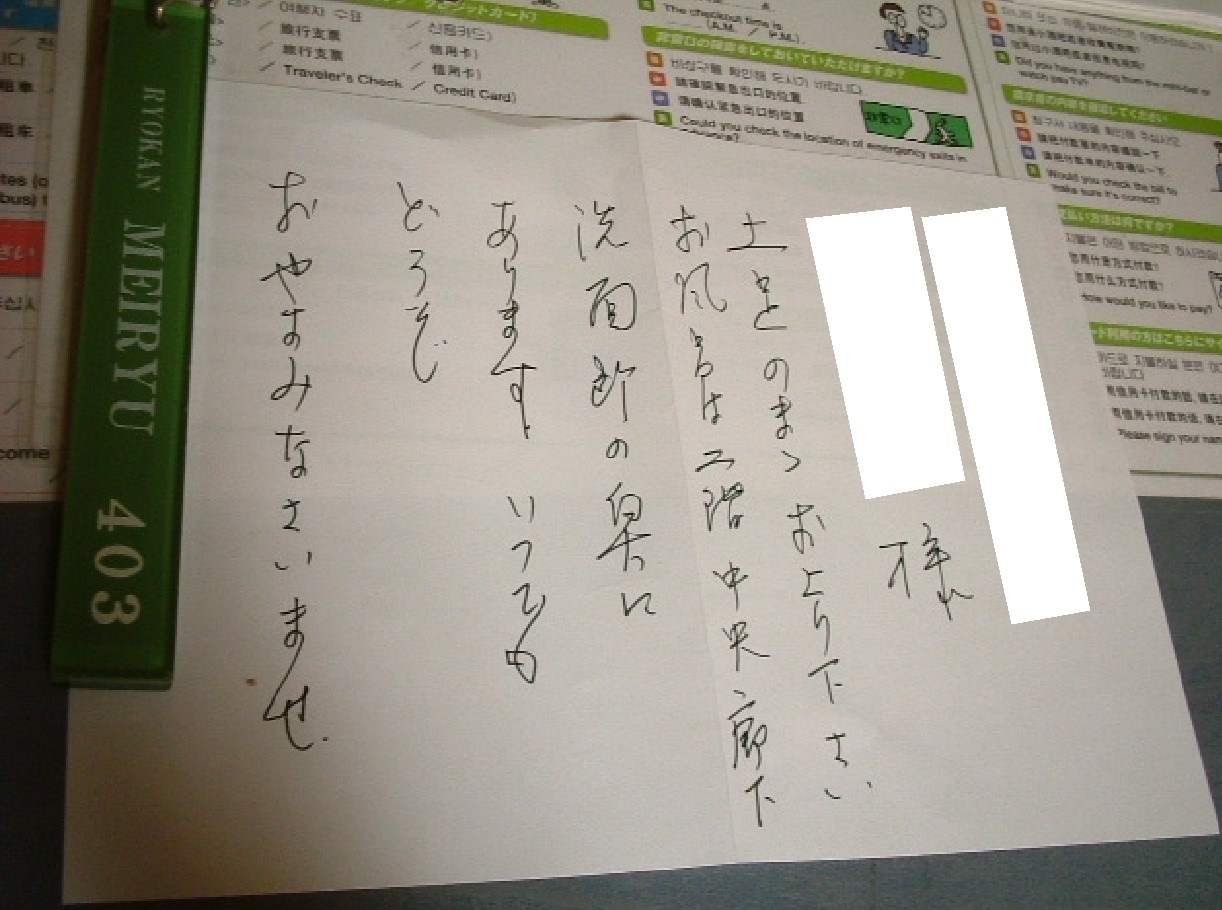 様
土足のまゝお上り下さい
お風呂は二階中央廊下
洗面所の奥に
あります いつでも
どうぞ
おやすみなさいませ.
RYOKAN MEIRYU 403
여행자 수표 / 신용카드)
旅行支票 / 信用卡)
旅行支票 / 信用卡)
Traveler's Check / Credit Card)
The checkout time is
(A.M. / P.M.)
非常口の確認をしておいていただけますか?
비상구를 확인해 두시기 바랍니다
請確認緊急出口的位置
请确认紧急出口的位置
Could you check the location of emergency exits in
Did you have anything from the mini-bar or
watch pay TV?
請求書の内容を確認してください
Would you check the bill to
make sure it's correct?
お支払い方法は何ですか?
How would you like to pay?
Please sign your